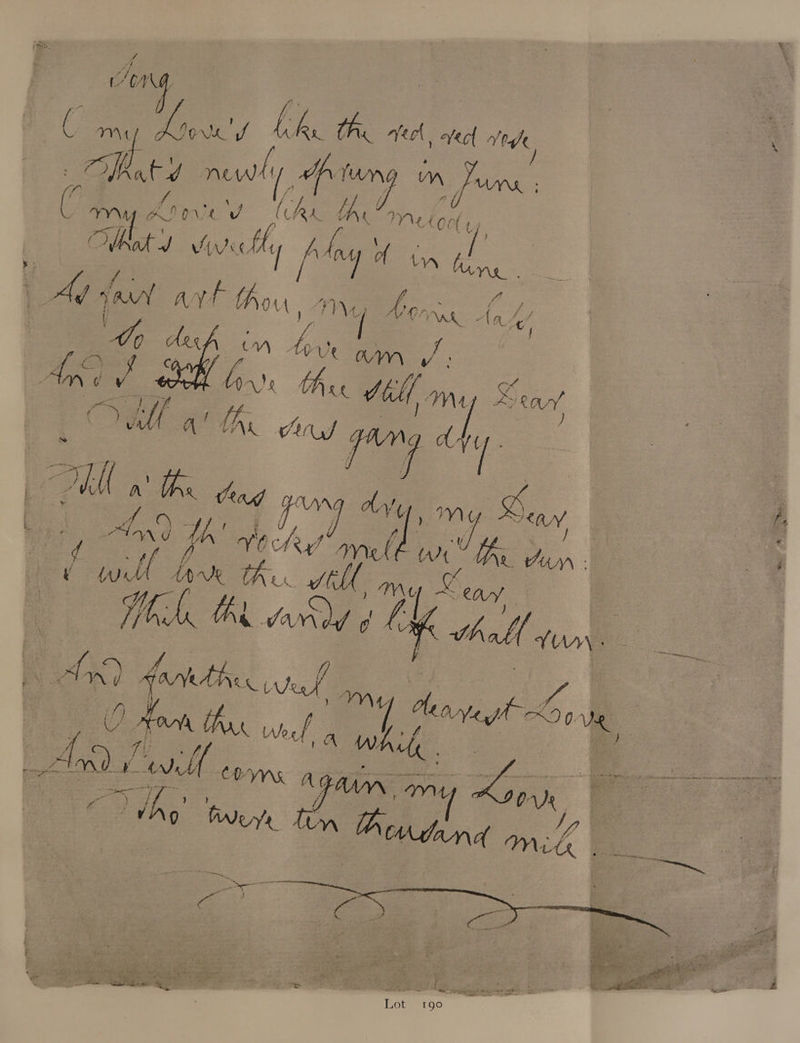 Song
O my Love's like the red, red rose,
That's newly sprung in June:
O my Love's like the melody,
That's sweetly play'd in tune.
As fair art thou, my bonie lass,
So deep in love am I:
And I can love thee still, my Dear,
Till a' the seas gang dry.
Till a' the seas gang dry, my Dear,
And th' rocks melt wi' the sun:
I will love thee still, my Dear,
While the sands o' life shall run.
And fare thee weel, my dearest Love,
O fare thee weel, a while.
And I will come again, my Love,
Tho' twere ten thousand mile
Lot 190